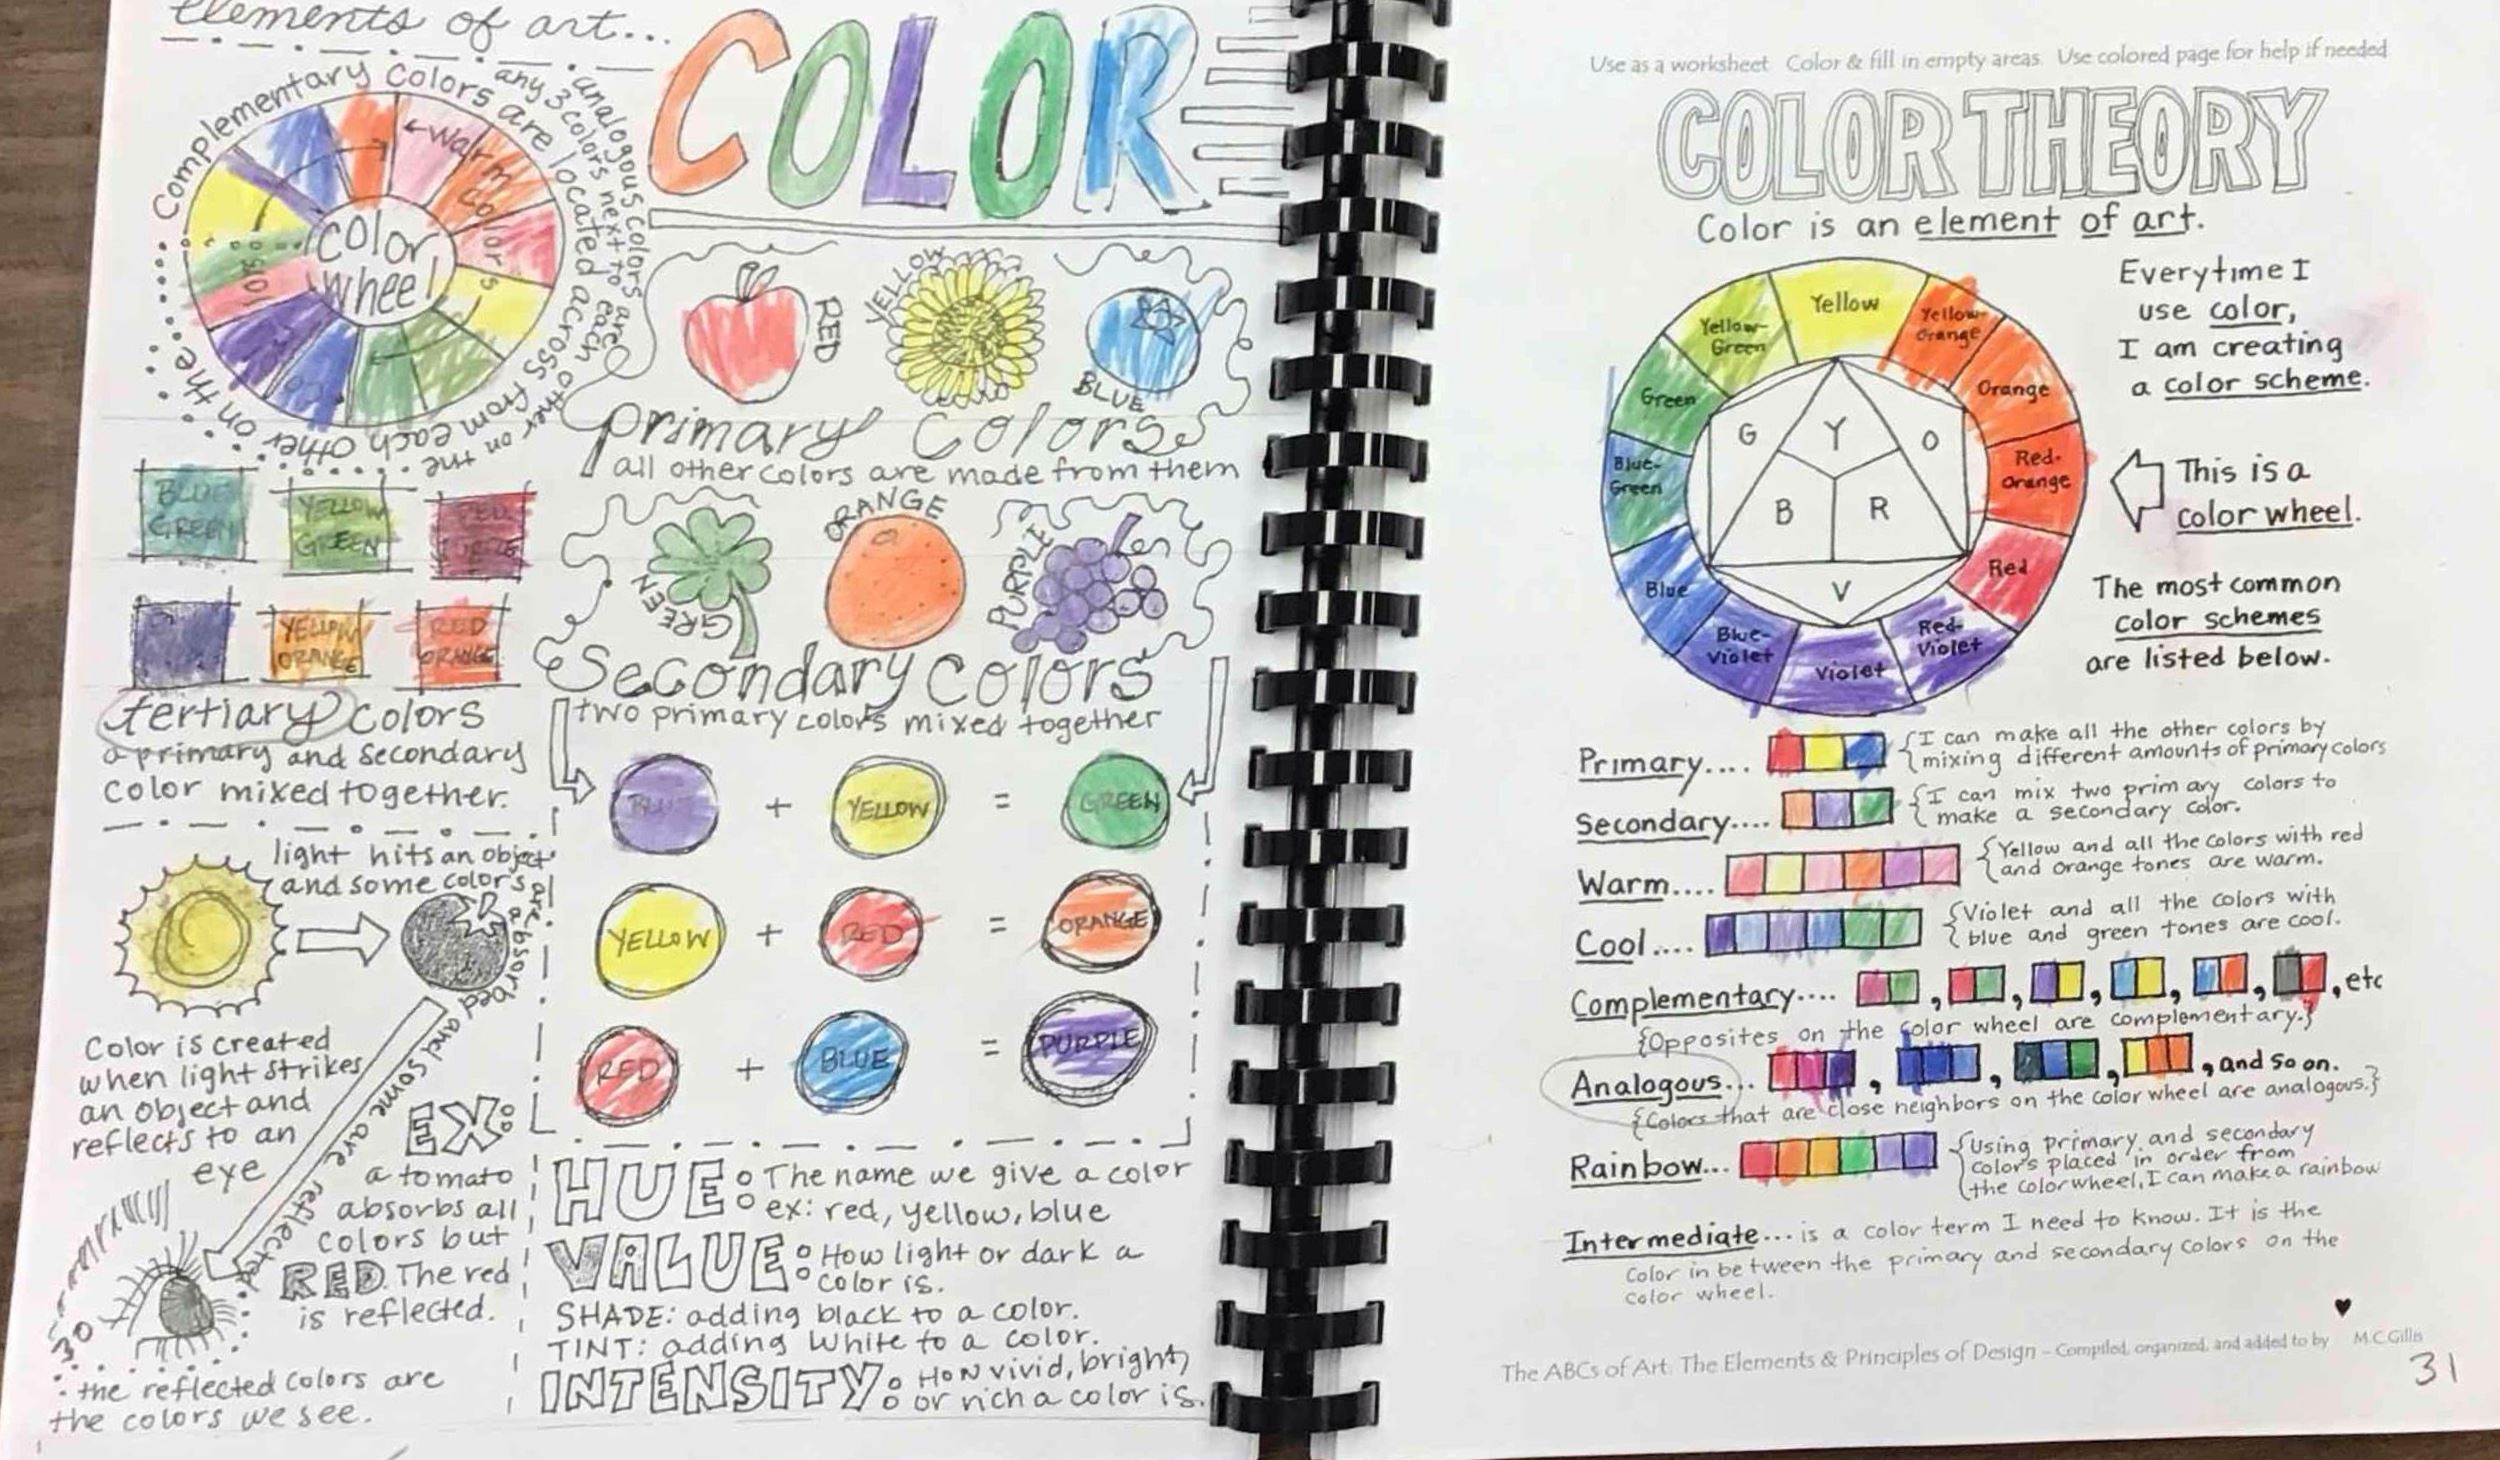 elements of art...
COLOR
Complementary colors are located across from each other on the
analogous colors are
any 3 colors next to each other on the
←warm colors
color
wheel
RED
YELLOW
BLUE
primary colors
all other colors are made from them
BLUE
GREEN
YELLOW
GREEN
RED
YELLOW
ORANGE
RED
ORANGE
GREEN
ORANGE
PURPLE
Secondary colors
two primary colors mixed together
tertiary colors
a primary and secondary
color mixed together.
BLUE + YELLOW = GREEN
YELLOW + RED = ORANGE
RED + BLUE = PURPLE
light hits an object
and some colors are absorbed
and some are reflected
Color is created
when light strikes
an object and
reflects to an
eye
EX:
a tomato
absorbs all
colors but
RED. The red
is reflected.
the reflected colors are
the colors we see.
30
HUE: The name we give a color
ex: red, yellow, blue
VALUE: How light or dark a
color is.
SHADE: adding black to a color.
TINT: adding white to a color.
INTENSITY: How vivid, bright,
or rich a color is.
Use as a worksheet Color & fill in empty areas. Use colored page for help if needed
COLOR THEORY
Color is an element of art.
Yellow
Yellow-
Orange
Orange
Red-
Orange
Red
Red-
Violet
Violet
Blue-
Violet
Blue
Blue-
Green
Green
Yellow-
Green
G Y O
B R
V
Everytime I
use color,
I am creating
a color scheme.
This is a
color wheel.
The most common
color schemes
are listed below.
Primary.... {I can make all the other colors by
mixing different amounts of primary colors
Secondary.... {I can mix two primary colors to
make a secondary color.
Warm.... {Yellow and all the colors with red
and orange tones are warm.
Cool.... {Violet and all the colors with
blue and green tones are cool.
Complementary.... , , , , , , etc
{Opposites on the color wheel are complementary.}
Analogous... , , , , and so on.
{Colors that are close neighbors on the color wheel are analogous.}
Rainbow... {Using primary and secondary
colors placed in order from
the color wheel, I can make a rainbow
Intermediate... is a color term I need to know. It is the
color in between the primary and secondary colors on the
color wheel.
The ABCs of Art: The Elements & Principles of Design - Compiled, organized, and added to by M.C.Gillis
31